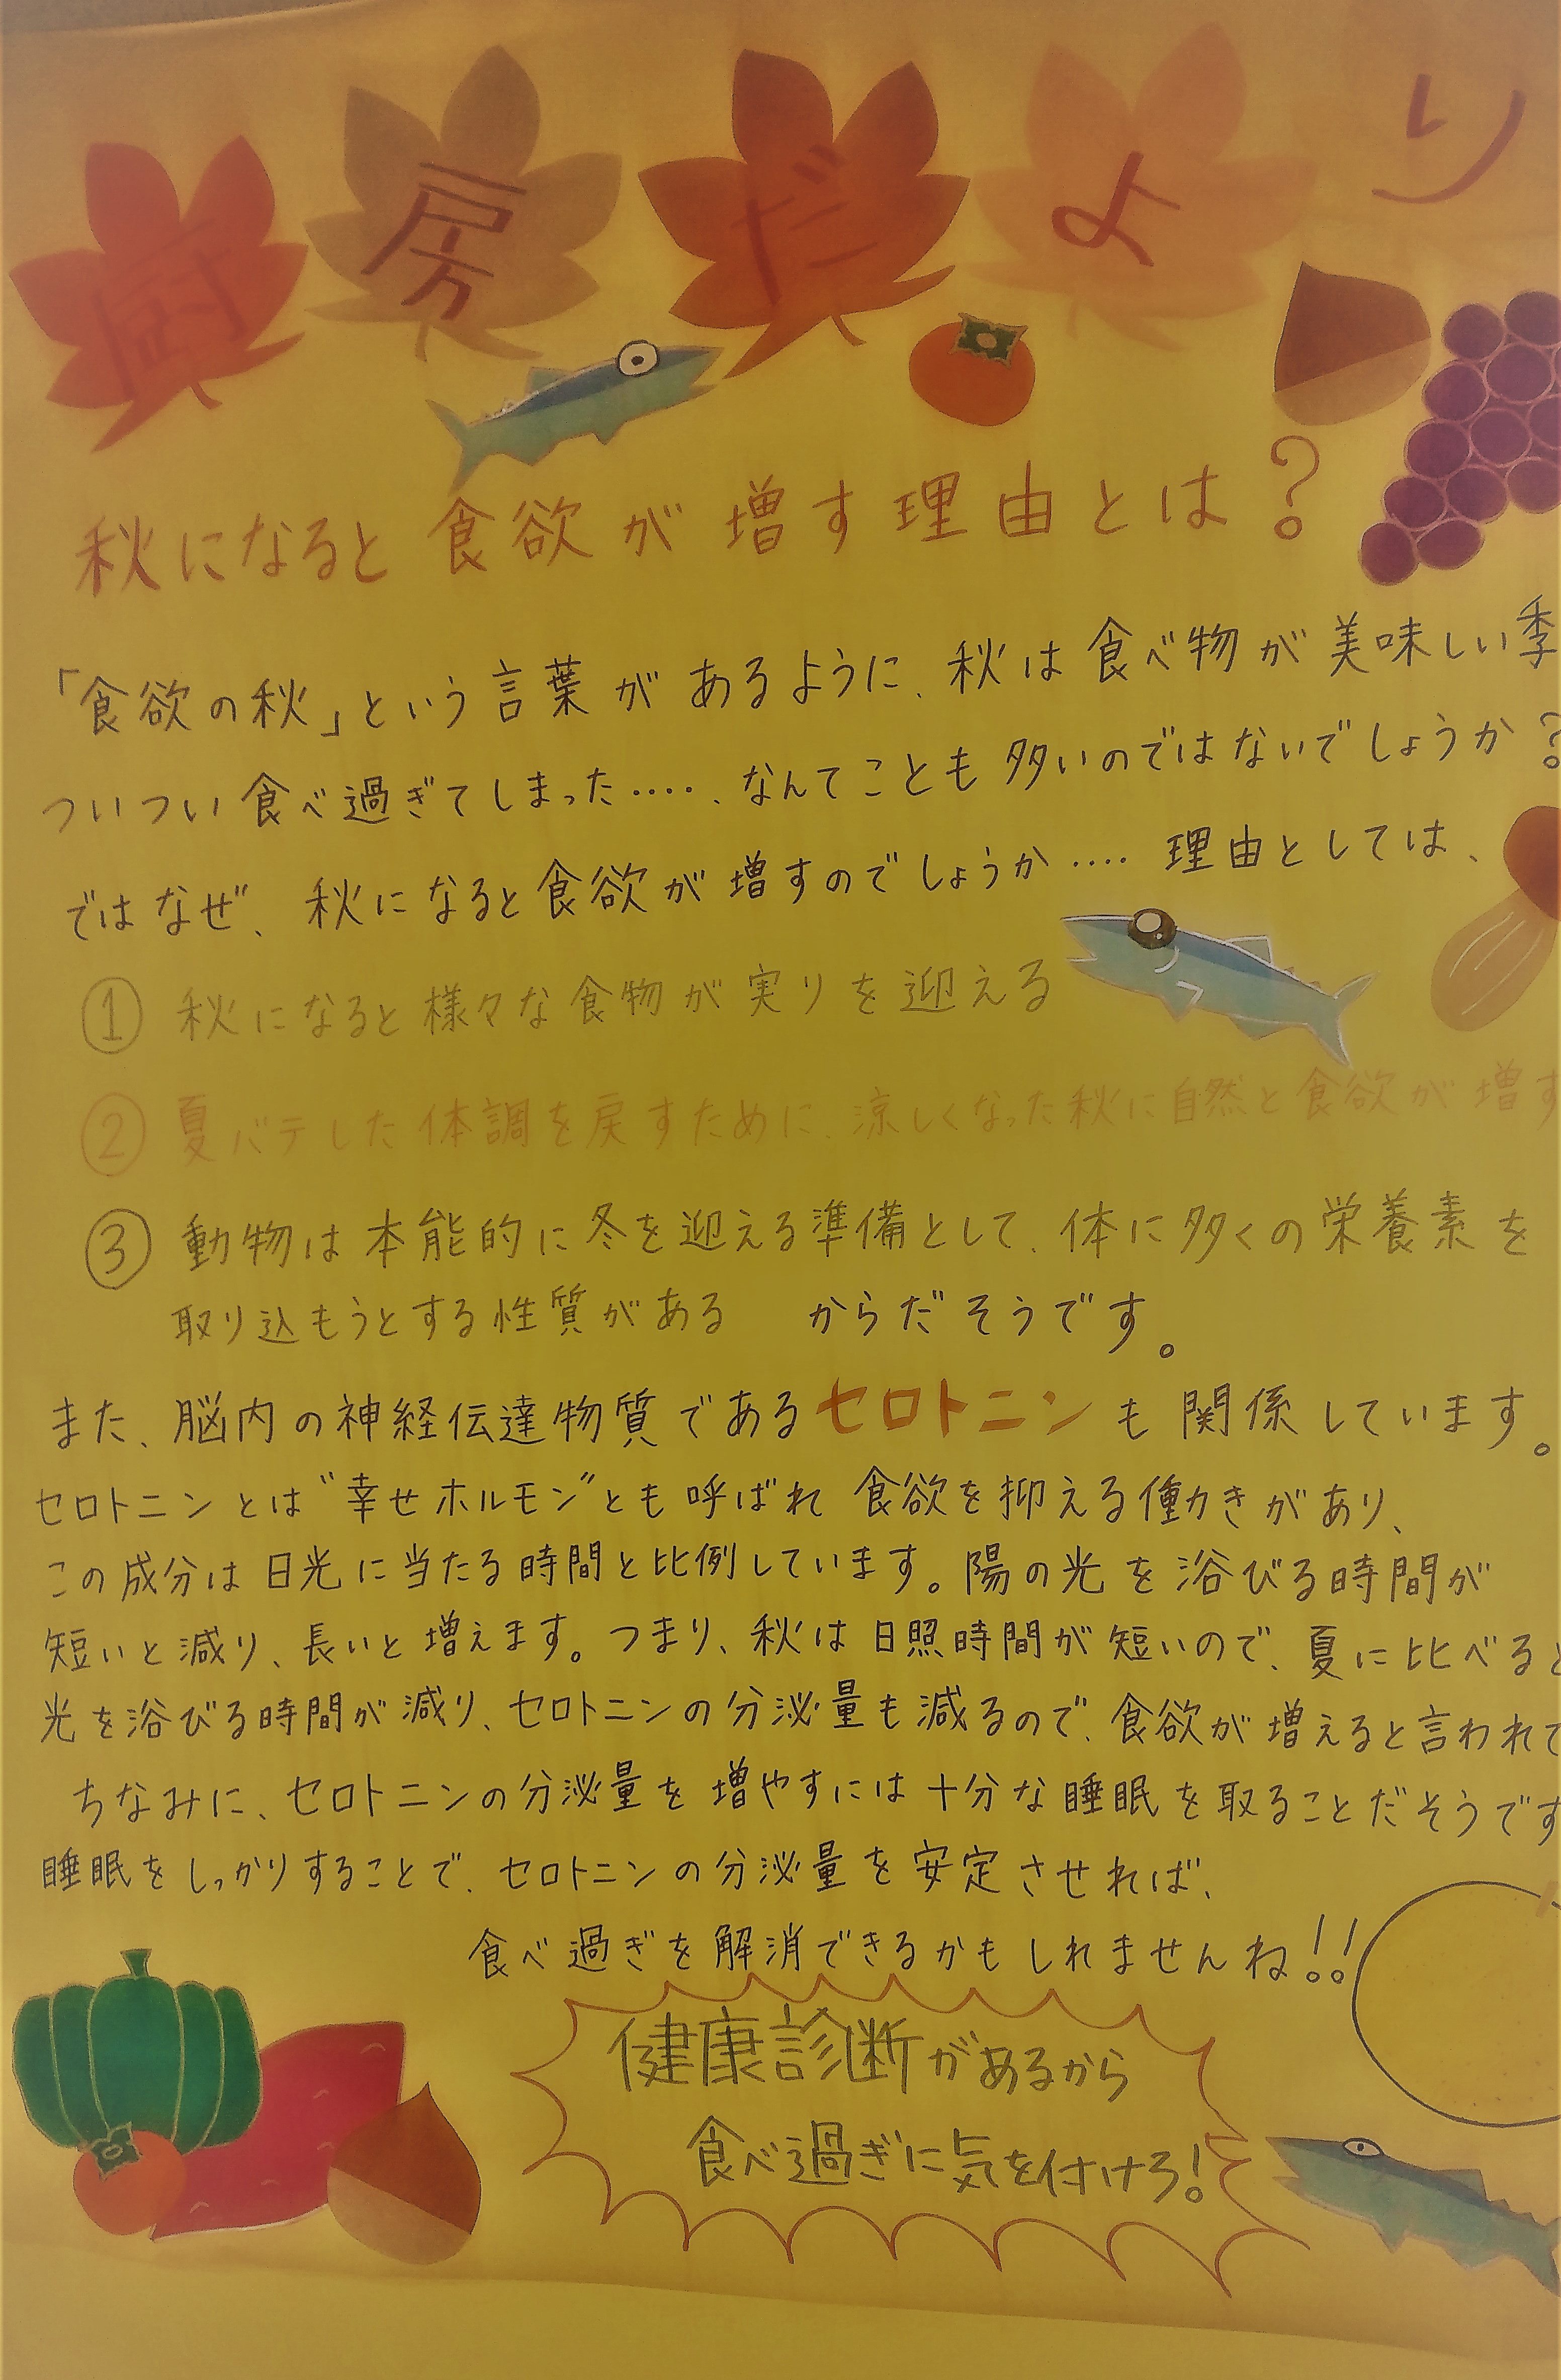 厨房だより
秋になると食欲が増す理由とは？
「食欲の秋」という言葉があるように、秋は食べ物が美味しい季
ついつい食べ過ぎてしまった‥‥、なんてことも多いのではないでしょうか？
ではなぜ、秋になると食欲が増すのでしょうか‥‥理由としては、
① 秋になると様々な食物が実りを迎える
② 夏バテした体調を戻すために、涼しくなった秋に自然と食欲が増す
③ 動物は本能的に冬を迎える準備として、体に多くの栄養素を
取り込もうとする性質がある からだそうです。
また、脳内の神経伝達物質であるセロトニンも関係しています。
セロトニンとは"幸せホルモン"とも呼ばれ食欲を抑える働きがあり、
この成分は日光に当たる時間と比例しています。陽の光を浴びる時間が
短いと減り、長いと増えます。つまり、秋は日照時間が短いので、夏に比べると
光を浴びる時間が減り、セロトニンの分泌量も減るので、食欲が増えると言われて
ちなみに、セロトニンの分泌量を増やすには十分な睡眠を取ることだそうです
睡眠をしっかりすることで、セロトニンの分泌量を安定させれば、
食べ過ぎを解消できるかもしれませんね！！
健康診断があるから
食べ過ぎに気を付けろ！